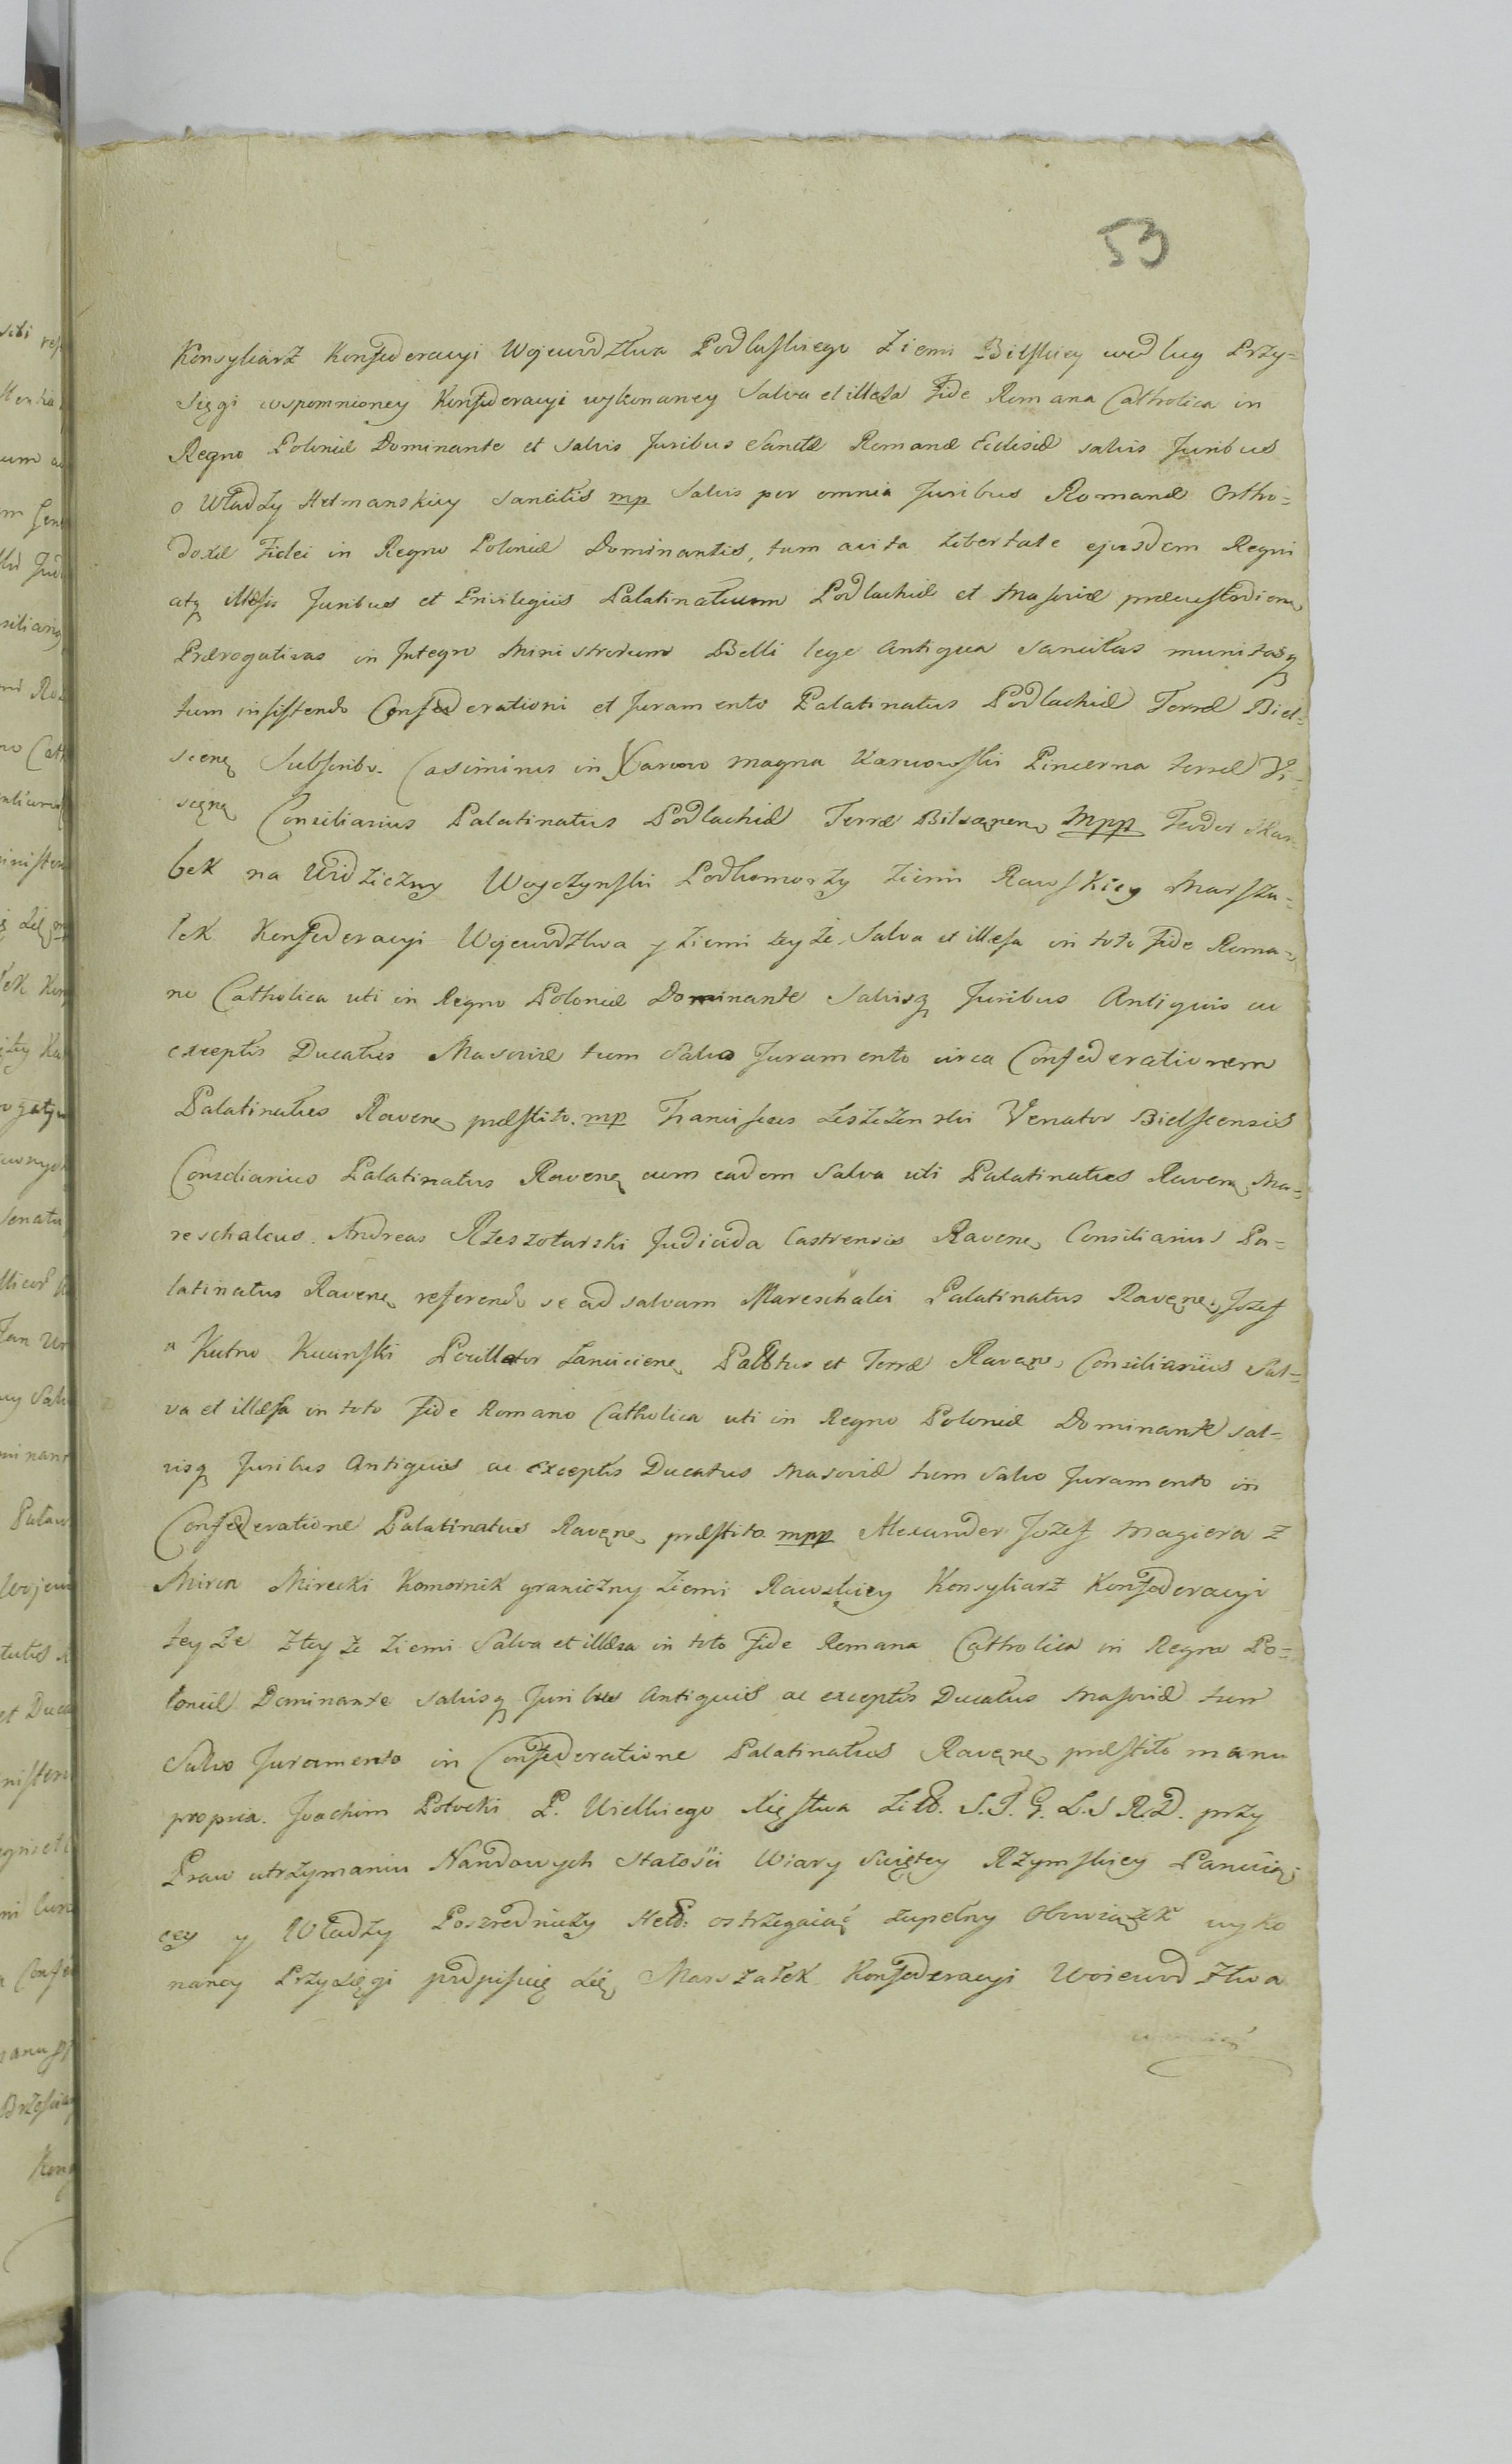 53
Konsyliarz Konfederacyi Wojewodztwa Podlaskiego Ziemi Bielskiey według Przy=
sięgi wspomnioney Konfederacyi wykonaney Salva et illæsa Fide Romana Catholica in
Regno Poloniæ Dominante et Salvis Juribus Sanctæ Romanæ Eclesiæ salvis Juribus
o Władzy Hetmanskiey sancitis mp Salvis per omnia Juribus Romanæ Ortho=
doxæ Fidei in Regno Poloniæ Dominantis, tum avita Libertate ejusdem Regni
atq illæsis Juribus et Privilegiis Palatinatuum Podlachiæ et Masoviæ
Prærogativas in Integro Ministrorum Belli lege Antiqua Sancitas munitasq
tum insistendo Confœderationi et Juramento Palatinatus Podlachiæ Terræ Biel=
scieną Subscribo. Casimirus in Karwowo magna Karwowski Pincerna terræ Vi=
sceną Consiliarius Palatinatus Podlachiæ Terræ mpp Teodor Skar=
bek na Woyczynski Podkomorzy Ziemi Rawskiey Marsza=
łek Konfederacyi Wojewodztwa y Ziemi teyże, Salva et illæsa in toto Fide Roma=
no Catholica uti in Regno Poloniæ Dominante Salvisq Juribus Antiquis ac
exceptis Ducatus Masoviæ tum Salvo Juramento circa Confederationem
Palatinatus Raveną præstito. mp Franciscus Leszczenski Venator Bielscensis
Consiliarius Palatinatus Raveną cum eadem Salva uti Palatinatus Raveną Ma=
reschalcus. Andreas Rzeszotarski Castrensis Raveną Consiliarius Pa=
latinatus Raveną referendo se ad salvam Mareschalci Palatinatus Raveną. Jozef
a Kutno Kucinski Pocillator Lancicieną Palttus et Terræ Raveną Consiliariis Sal=
va et illæsa in toto Fide Romano Catholica uti in Regno Poloniæ Dominante sal=
visq Juribus Antiquis ac Exceptis Ducatus Masoviæ tum Salvo Juramento in
Confœderatione Palatinatus Raveną præstito mpp Alexander Jozef Magiera z
Mirca Mirecki Komornik graniczny Ziemi Rawskiey Konsyliarz Konfederacyi
teyże z tey że Ziemi Salva et illæsa in toto Fide Romana Catholica in Regno Po=
loniæ Dominante salvisq Juribus Antiquis ac exceptis Ducatus Masoviæ tum
Salvo Juramento in Confœderatione Palatinatus Raveną præstito manu
propria. Joachim Potocki P. Wielkiego Xięstwa Litt. S. J. G. L. J R.D. przy
Praw utrzymaniu Narodowych stałości Wiary Swiętey Rzymskiey Panuią=
cey y Władzy Poszredniczy Hett: ostrzegaiąć zupełny Obowiązek wyko
naney Przysięgi podpisuię się Marszałek Konfederacyi Woiewodztwa